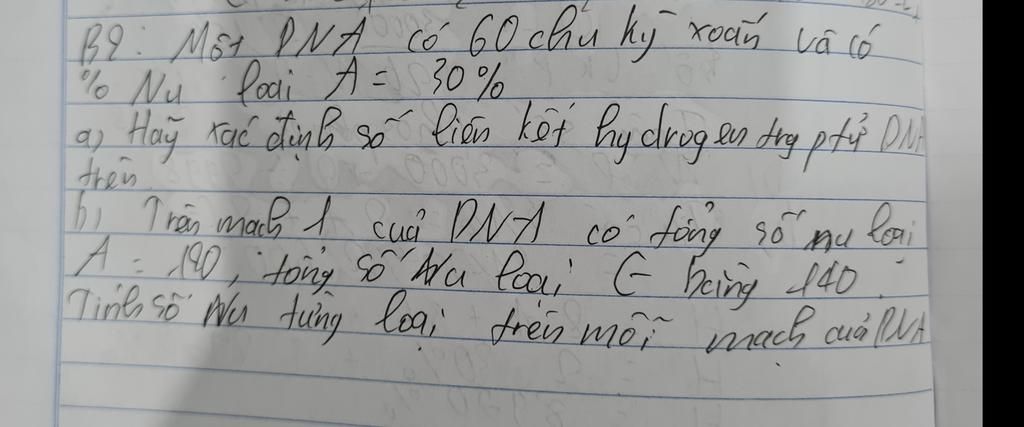 B9: Một DNA có 60 chu kỳ xoắn và có
% Nu loại A = 30%
a, Hãy xác định số liên kết hydrogen trg ptử DNA
trên.
b, Trên mạch 1 của DNA có tổng số nu loại
A = 190, tổng số Nu loại G bằng 140.
Tính số Nu từng loại trên mỗi mạch của DNA